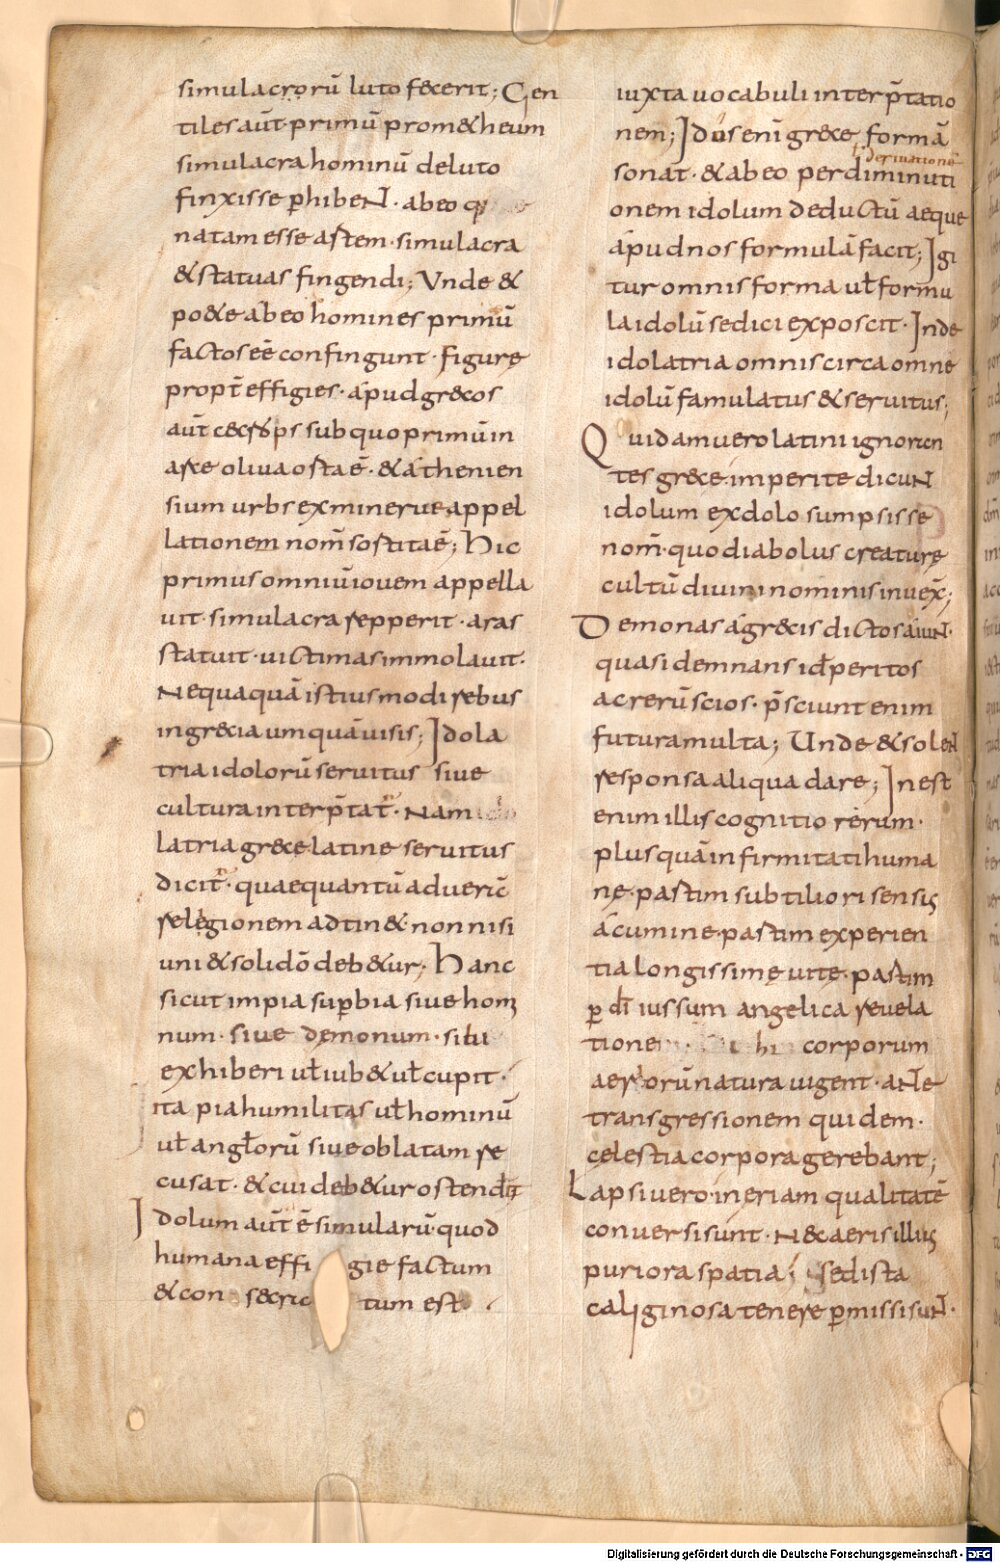 simulacrorū luto fecerit; Gen
tiles aūt primū prom&heum
simulacra hominū de luto
finxisse phibeNt· ab eo
natam esse artem simulacra
& statuas fingendi; Unde &
po&e ab eo homines primū
factos eē confingunt· figurę
propt effigies· apud grecos
aūt cecrops sub quo primū in
arce oliva orta ē· & athenien
sium urbs ex minerve appel
lationem nom̄ sortita ē; Hic
primus omniū iovem appella
vit· simulacra repperit· aras
statuit· victimas immolavit·
Nequaquā istius modi rebus
in grecia umquā visis; Idola
tria idolorū servitus sive
cultura interp̄tat̄· Nam
latria grece latine servitus
dicit̄· quae quantū ad verā
relegionem adtin& non nisi
uni & soli dō deb&ur; Hanc
sicut impia supbia sive homi
num· sive demonum· sibi
exhiberi ut iub& ut cupit·
ita pia humilitas ut hominū
ut anglorū sive oblatam re
cusat· & cui deb&ur ostendit
Idolum aūt ē simularū quod
humana effigie factum
& consecratum est·
iuxta vocabuli interp̄tatio
nem; Idūs enī grece formā
derivationē
sonat· & ab eo per diminuti
onem idolum deductū aeque
apud nos formulā facit; Igi
tur omnis forma ut formu
la idolū se dici exposcit· Inde
idolatria omnis circa omne
idolū famulatus & servitus;
Quidam vero latini ignoren
tes grece imperite dicuNt
idolum ex dolo sumpsisse
nom̄· quo diabolus creaturę
cultū divini nominis invex̄;
Demonas a grecis dictos aiuNt·
quasi demnans id peritos
ac rerū scios· p̄sciunt enim
futura multa; Unde & soleNt
responsa aliqua dare; Inest
enim illis cognitio rerum·
plus quā infirmitati huma
ne· partim subtiliori sensus
acumine· partim experien
tia longissimę vite· partim
p dī iussum angelica revela
tione· hi corporum
aeriorū natura vigent· aNte
transgressionem quidem·
celestia corpora gerebant;
Lapsi vero· in eriam qualitatē
conversi sunt· Nec aeris illius
puriora spatia· sed ista
caliginosa tenere pmissi suNt·
Digitalisierung gefördert durch die Deutsche Forschungsgemeinschaft - DFG